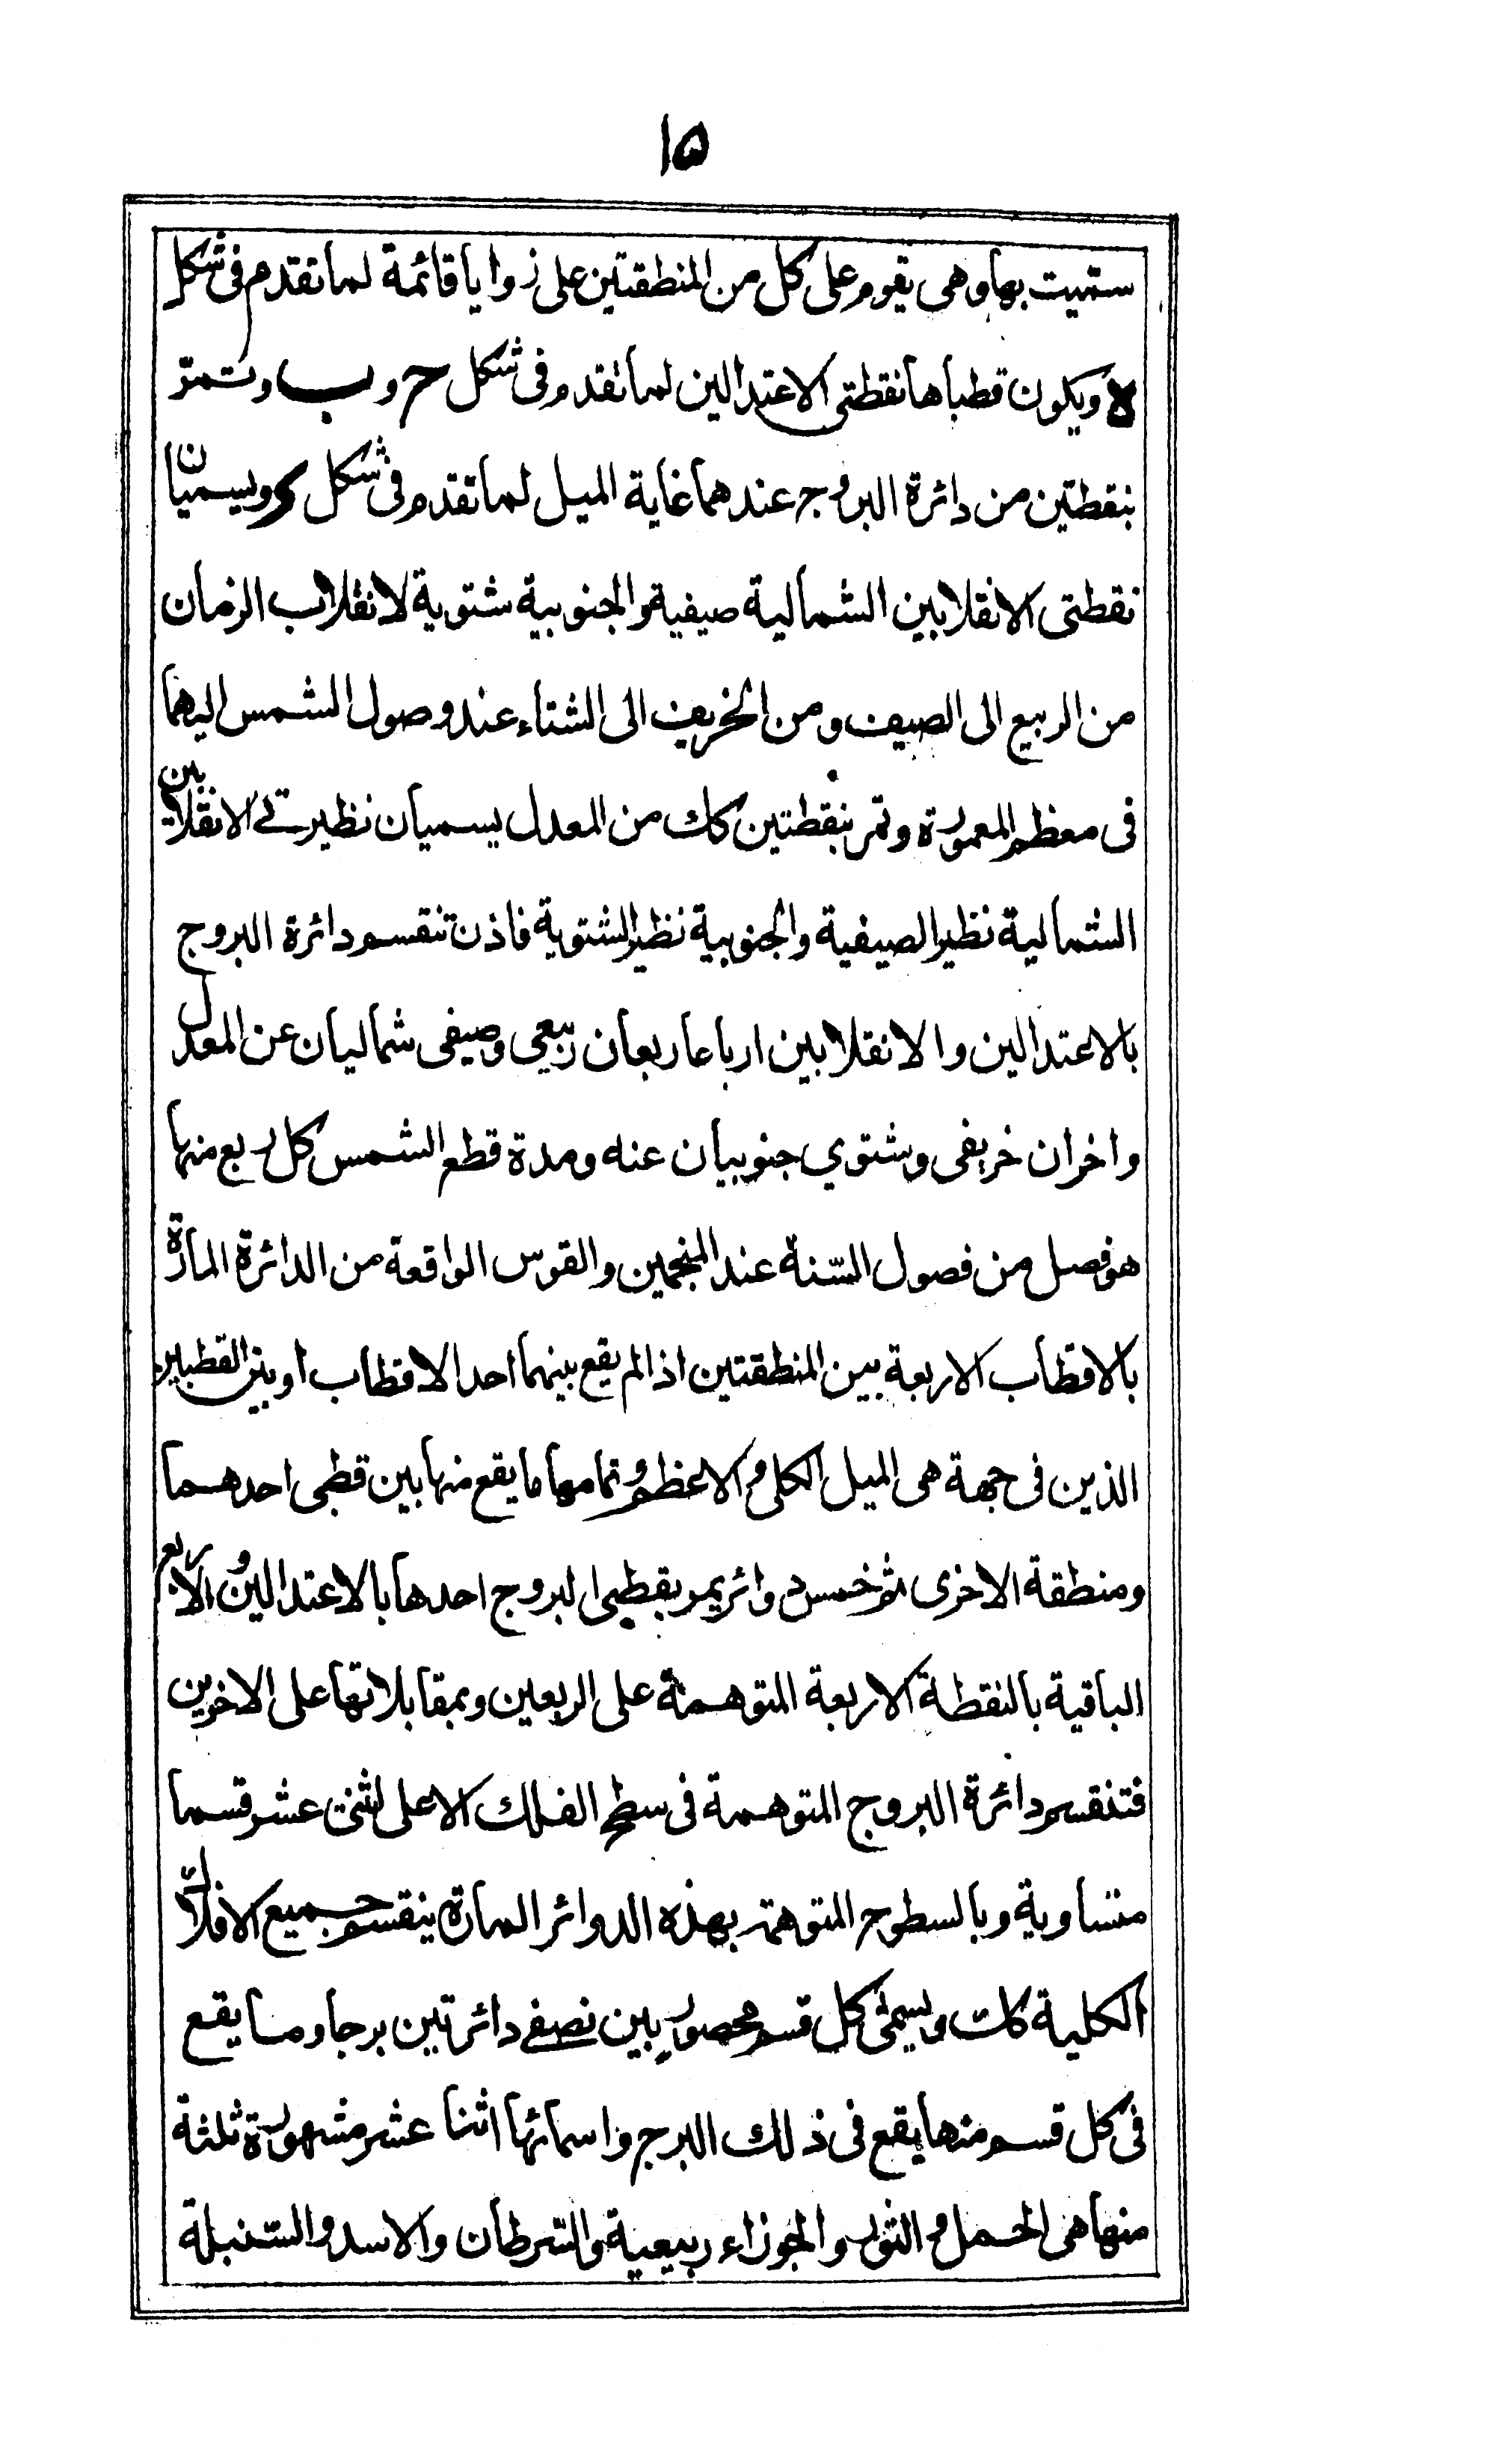 ١٥
سميت بها وهى يقوم على كل من المنطقتين على زوايا قائمة لما تقدم فى شكل
ه ويكون قطباها نقطتى الاعتدالين لما تقدم فى شكل ح و ب وتمرّ
بنقطتين من دائرة البروج عندهما غاية الميل لما تقدم فى شكل و ويسميان
نقطتى الانقلابين الشمالية صيفية والجنوبية شتوية لانقلاب الزمان
من الربيع الى الصيف ومن الخريف الى الشتاء عند وصول الشمس اليهما
فى معظم المعمورة وتمر بنقطتين كك من المعدل يسميان نظيرتى الانقلابين
الشمالية نظير الصيفية والجنوبية نظير الشتوية فاذن تنقسم دائرة البروج
بالاعتدالين والانقلابين ارباعا ربعان ربيعي وصيفى شماليان عن المعدل
واخران خريفى وشتوي جنوبيان عنه ومدة قطع الشمس كل ربع منها
هو فصل من فصول السّنة عند المنجمين والقوس الواقعة من الدائرة المارة
بالاقطاب الاربعة بين المنطقتين اذا لم يقع بينهما احد الاقطاب او بين القطبين
الذين فى جهة هى الميل الكلى والاعظم وتمامها ما يقع منها بين قطبى احدهما
ومنطقة الاخرى ثم خمس دوائر يمر بقطبى البروج احدها بالاعتدالين والاربع
الباقية بالنقطة الاربعة المتوهمة على الربعين وبمقابلاتها على الاخرين
فتنقسم دائرة البروج المتوهمة فى سطح الفلك الاعلى اثنى عشر قسما
متساوية وبالسطوح المتوهمة بهذه الدوائر المارة ينقسم جميع الافلاك
الكلية كك ويسمى كل قسم محصور بين نصفى دائرتين برجا وما يقع
فى كل قسم منها يقع فى ذلك البرج واسمائها اثنا عشر مشهورة ثلثة
منها هى الحمل والثور والجوزاء ربيعية والسّرطان والاسد والسّنبلة